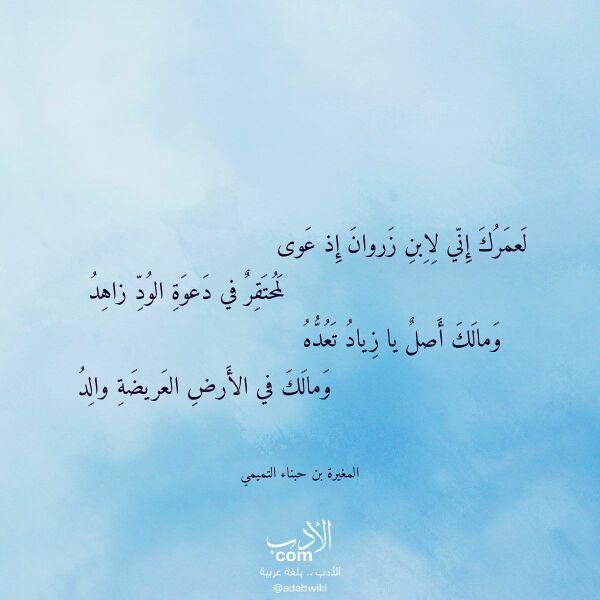 لَعَمرُكَ إِنّي لِاِبنِ زَروانَ إِذ عَوى
لَمُحتَقِرٌ في دَعوَةِ الوُدِّ زاهِدُ
وَمالَكَ أَصلٌ يا زِيادُ تَعُدُّهُ
وَمالَكَ في الأَرضِ العَريضَةِ والِدُ
المغيرة بن حبناء التميمي
الأدب
com
الأدب .. بلغة عربية
@adabwiki